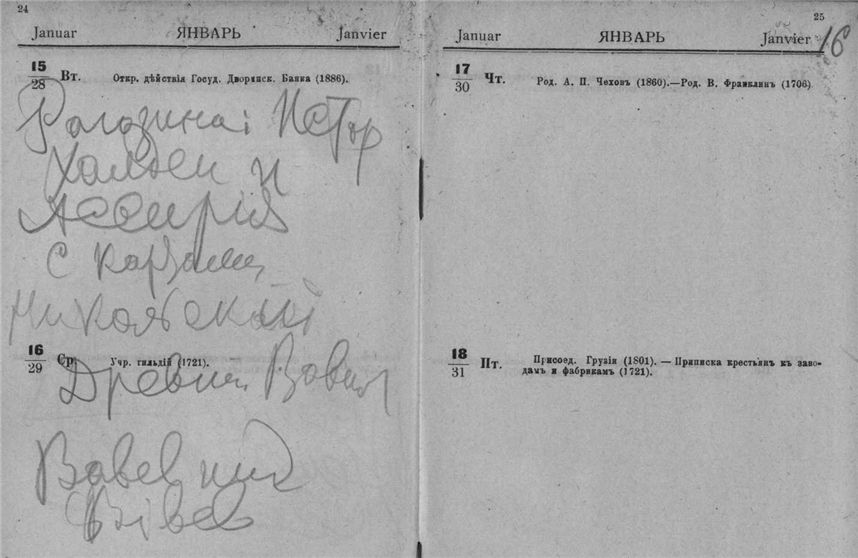 24
Januar ЯНВАРЬ Janvier
15
28 Вт. Откр. дѣйствія Госуд. Дворянск. Банка (1886).
Рагозина: Истор
Халдеи и
Ассирія
С картами
Никольскій
16
29 Ср. Учр. гильдій (1721).
Древній Вавил
Babel und
Bibel
25
Januar ЯНВАРЬ Janvier 16
17
30 Чт. Род. А. П. Чеховъ (1860).—Род. В. Франклинъ (1706)
18
31 Пт. Присоед. Грузіи (1801). — Приписка крестьянъ къ заво-
дамъ и фабрикамъ (1721).